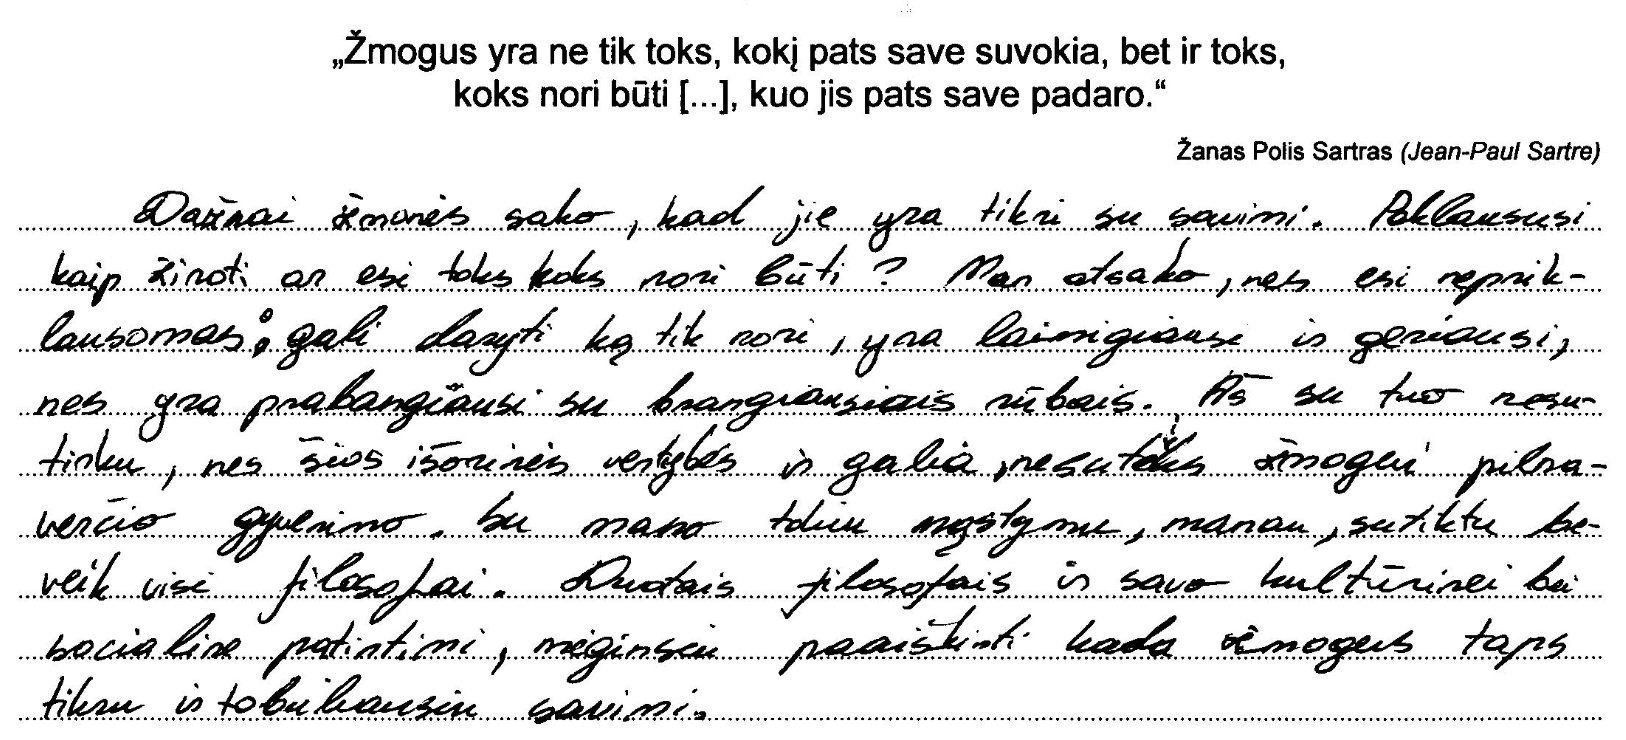 „Žmogus yra ne tik toks, kokį pats save suvokia, bet ir toks,
koks nori būti [...], kuo jis pats save padaro.“
Žanas Polis Sartras (Jean-Paul Sartre)
Dažnai žmonės sako, kad jie yra tikri su savimi. Paklaususi
kaip žinoti ar esi toks koks nori būti? Man atsako, nes esi neprik-
lausomas: gali daryti ką tik nori, yra laimigiausi ir geriausi,
nes yra prabangiausi su brangiausiais rūbais. Aš su tuo nesu-
tinku, nes šios išorinės vertybės ir galia, nesuteiks žmogui pilna-
verčio gyvenimo. Su mano tokiu mąstymu, manau, sutiktu be-
veik visi filosofai. Duotais filosofais ir savo kultūrinei bei
socialine patirtimi, mėginsiu paaiškinti kada žmogus taps
tikru ir tobuliausiu savimi.